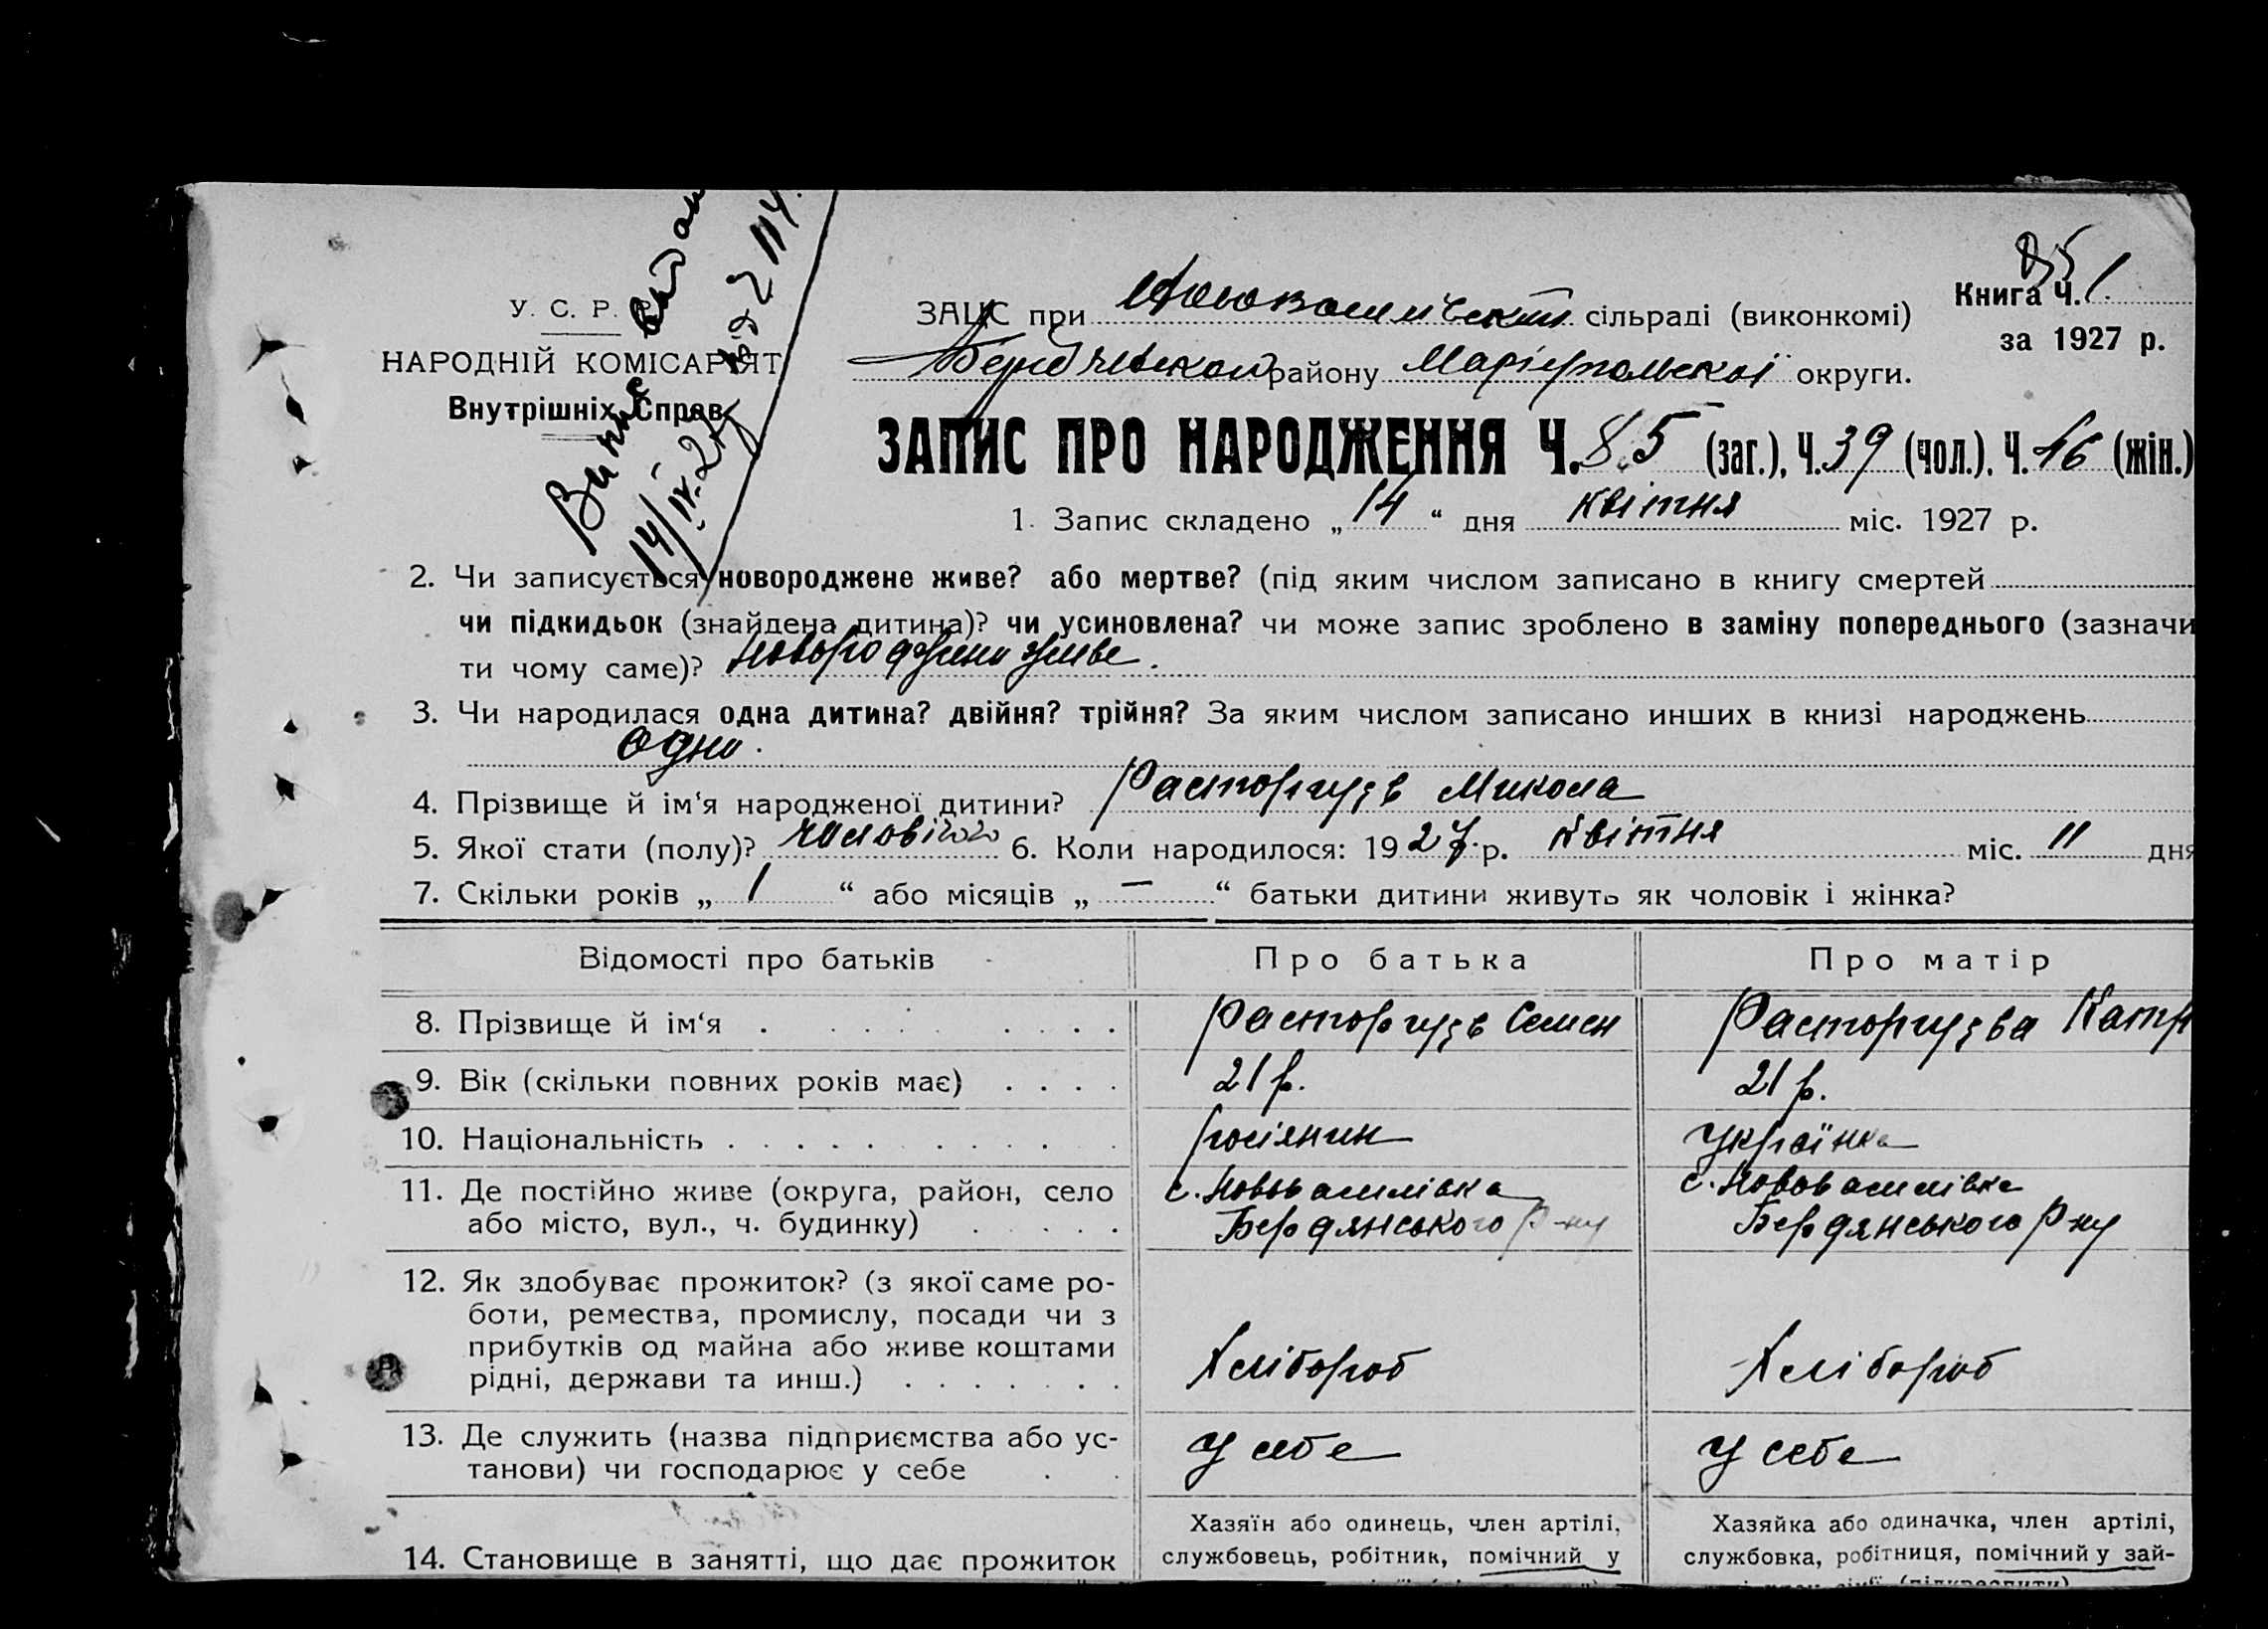 85
Книга Ч. 1.
за 1927 р.
У. С. Р. Р.
НАРОДНІЙ КОМІСАРІЯТ
Внутрішніх Справ
14/IV-27
ЗАЦС при сільраді (виконкомі)
району Маріупольської округи.
ЗАПИС ПРО НАРОДЖЕННЯ Ч. 85 (заг.), Ч. 39 (чол.), Ч. 46 (жін.)
1. Запис складено „14“ дня квітня міс. 1927 р.
2. Чи записується новороджене живе? або мертве? (під яким числом записано в книгу смертей
чи підкидьок (знайдена дитина)? чи усиновлена? чи може запис зроблено в заміну попереднього (зазначи
ти чому саме)? новороджене живе.
3. Чи народилася одна дитина? двійня? трійня? За яким числом записано инших в книзі народжень
одно.
4. Прізвище й ім‘я народженої дитини? Расторгуєв Микола
5. Якої стати (полу)? 6. Коли народилося: 1927 р. квітня міс. 11 дня
7. Скільки років „1“ або місяців „—“ батьки дитини живуть як чоловік і жінка?
Відомості про батьків Про батька Про матір
8. Прізвище й ім‘я Расторгуєв Семен Расторгуєва Катр
9. Вік (скільки повних років має) 21 р. 21 р.
10. Національність росіянин Українка
11. Де постійно живе (округа, район, село с. Нововасилівка с. Нововасилівка
або місто, вул., ч. будинку) Бердянського р-ну Бердянського р-ну
12. Як здобуває прожиток? (з якої саме ро-
боти, ремества, промислу, посади чи з
прибутків од майна або живе коштами Хлібороб Хлібороб
рідні, держави та инш.)
13. Де служить (назва підприємства або ус- У себе У себе
танови) чи господарює у себе
Хазяїн або одинець, член артілі, Хазяйка або одиначка, член артілі,
14. Становище в занятті, що дає прожиток службовець, робітник, помічний у службовка, робітниця, помічний у зай-